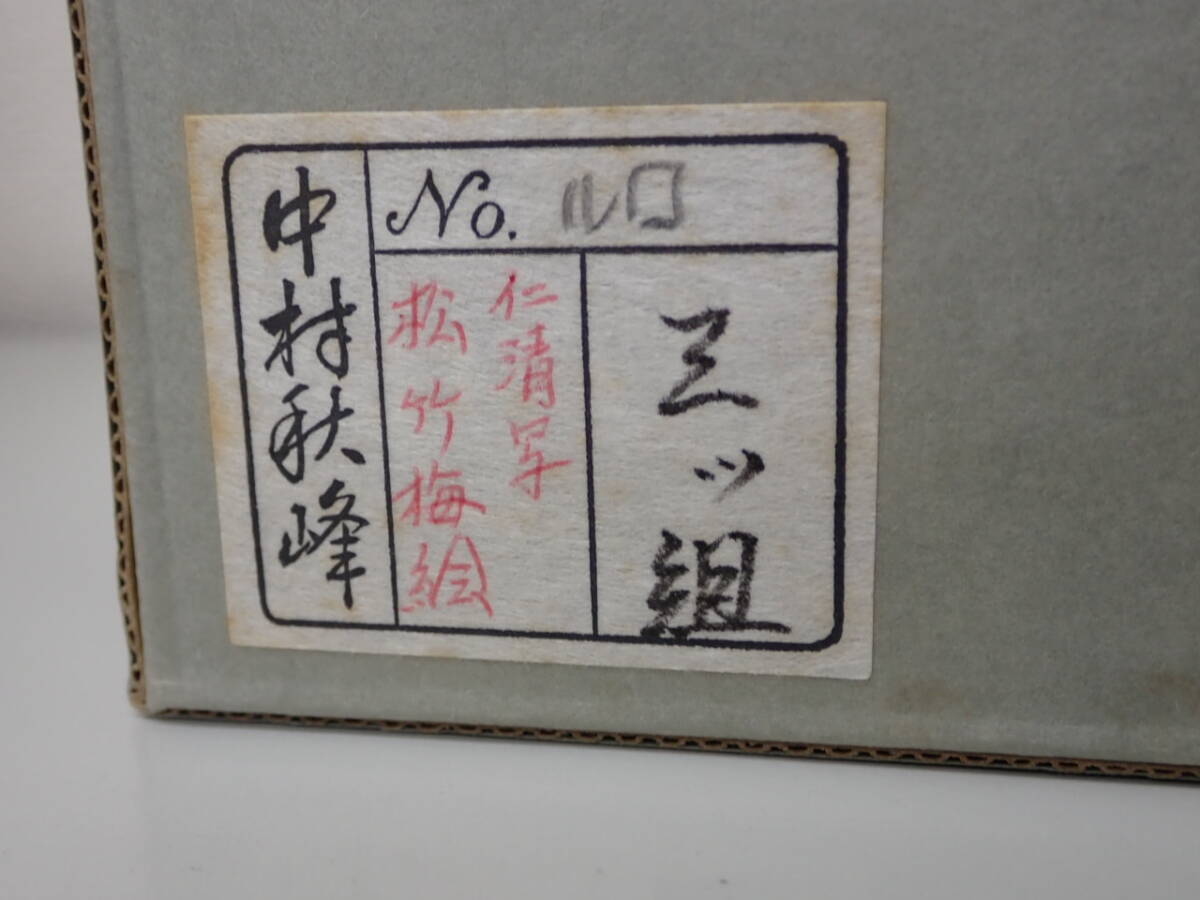 No. ルロ
三ッ組
仁清写
松竹梅絵
中村秋峰